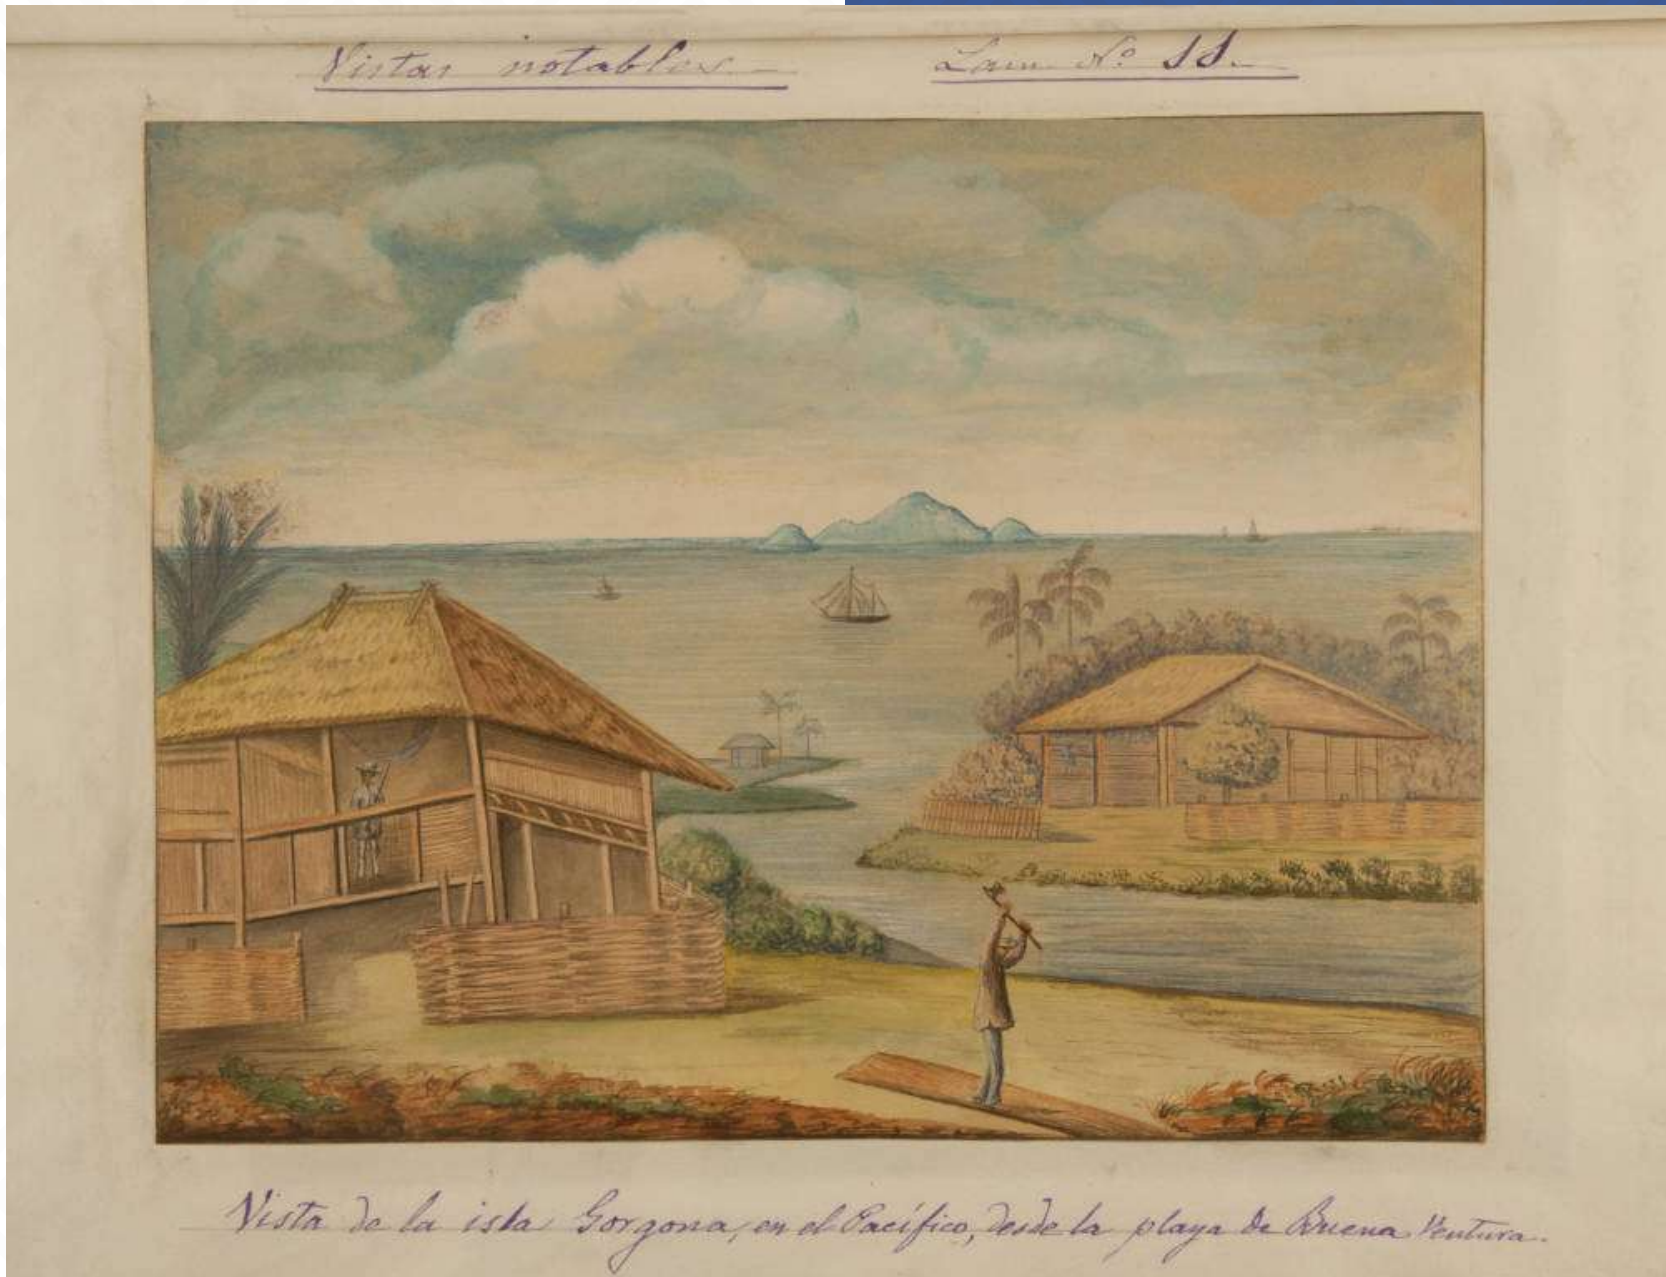 Vistas notables. Lam. No. 11.
Vista de la isla Gorgona, en el Pacífico, desde la playa de Buena Ventura.